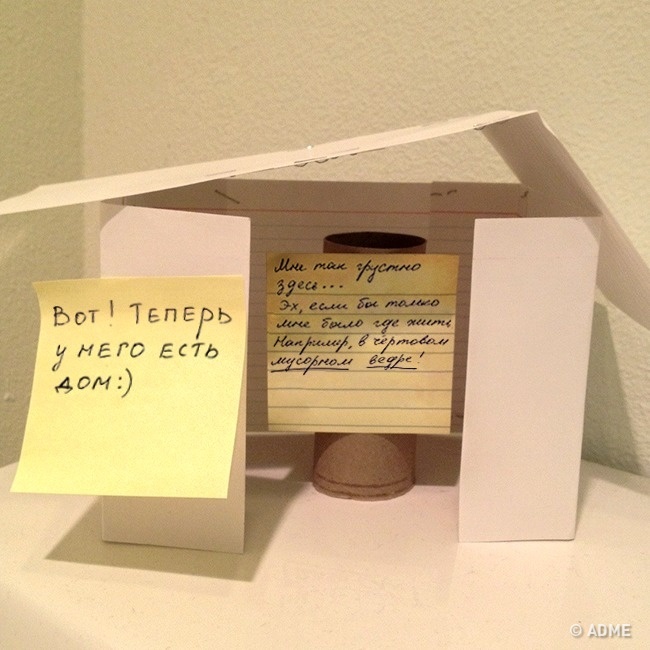 Вот! ТЕПЕРЬ
У НЕГО ЕСТЬ
ДОМ:)
Мне так грустно
здесь...
Эх, если бы только
мне было где жить
Например, в чертовом
мусорном ведре!
© ADME